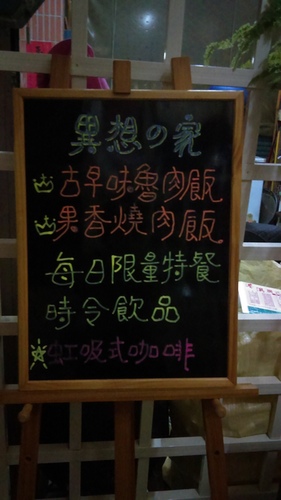 異想の家
古早味魯肉飯
果香燒肉飯
每日限量特餐
時令飲品
虹吸式咖啡